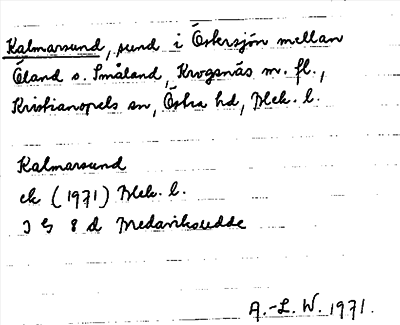 Kalmarsund, sund i Östersjön mellan
Öland o. Småland, Krogsnäs m. fl.,
Kristianopels sn, Östra hd, Blek. l.
Kalmarsund
ek (1971) Blek. l.
3 G 8 d Medaviksudde
A.-L. W. 1971.